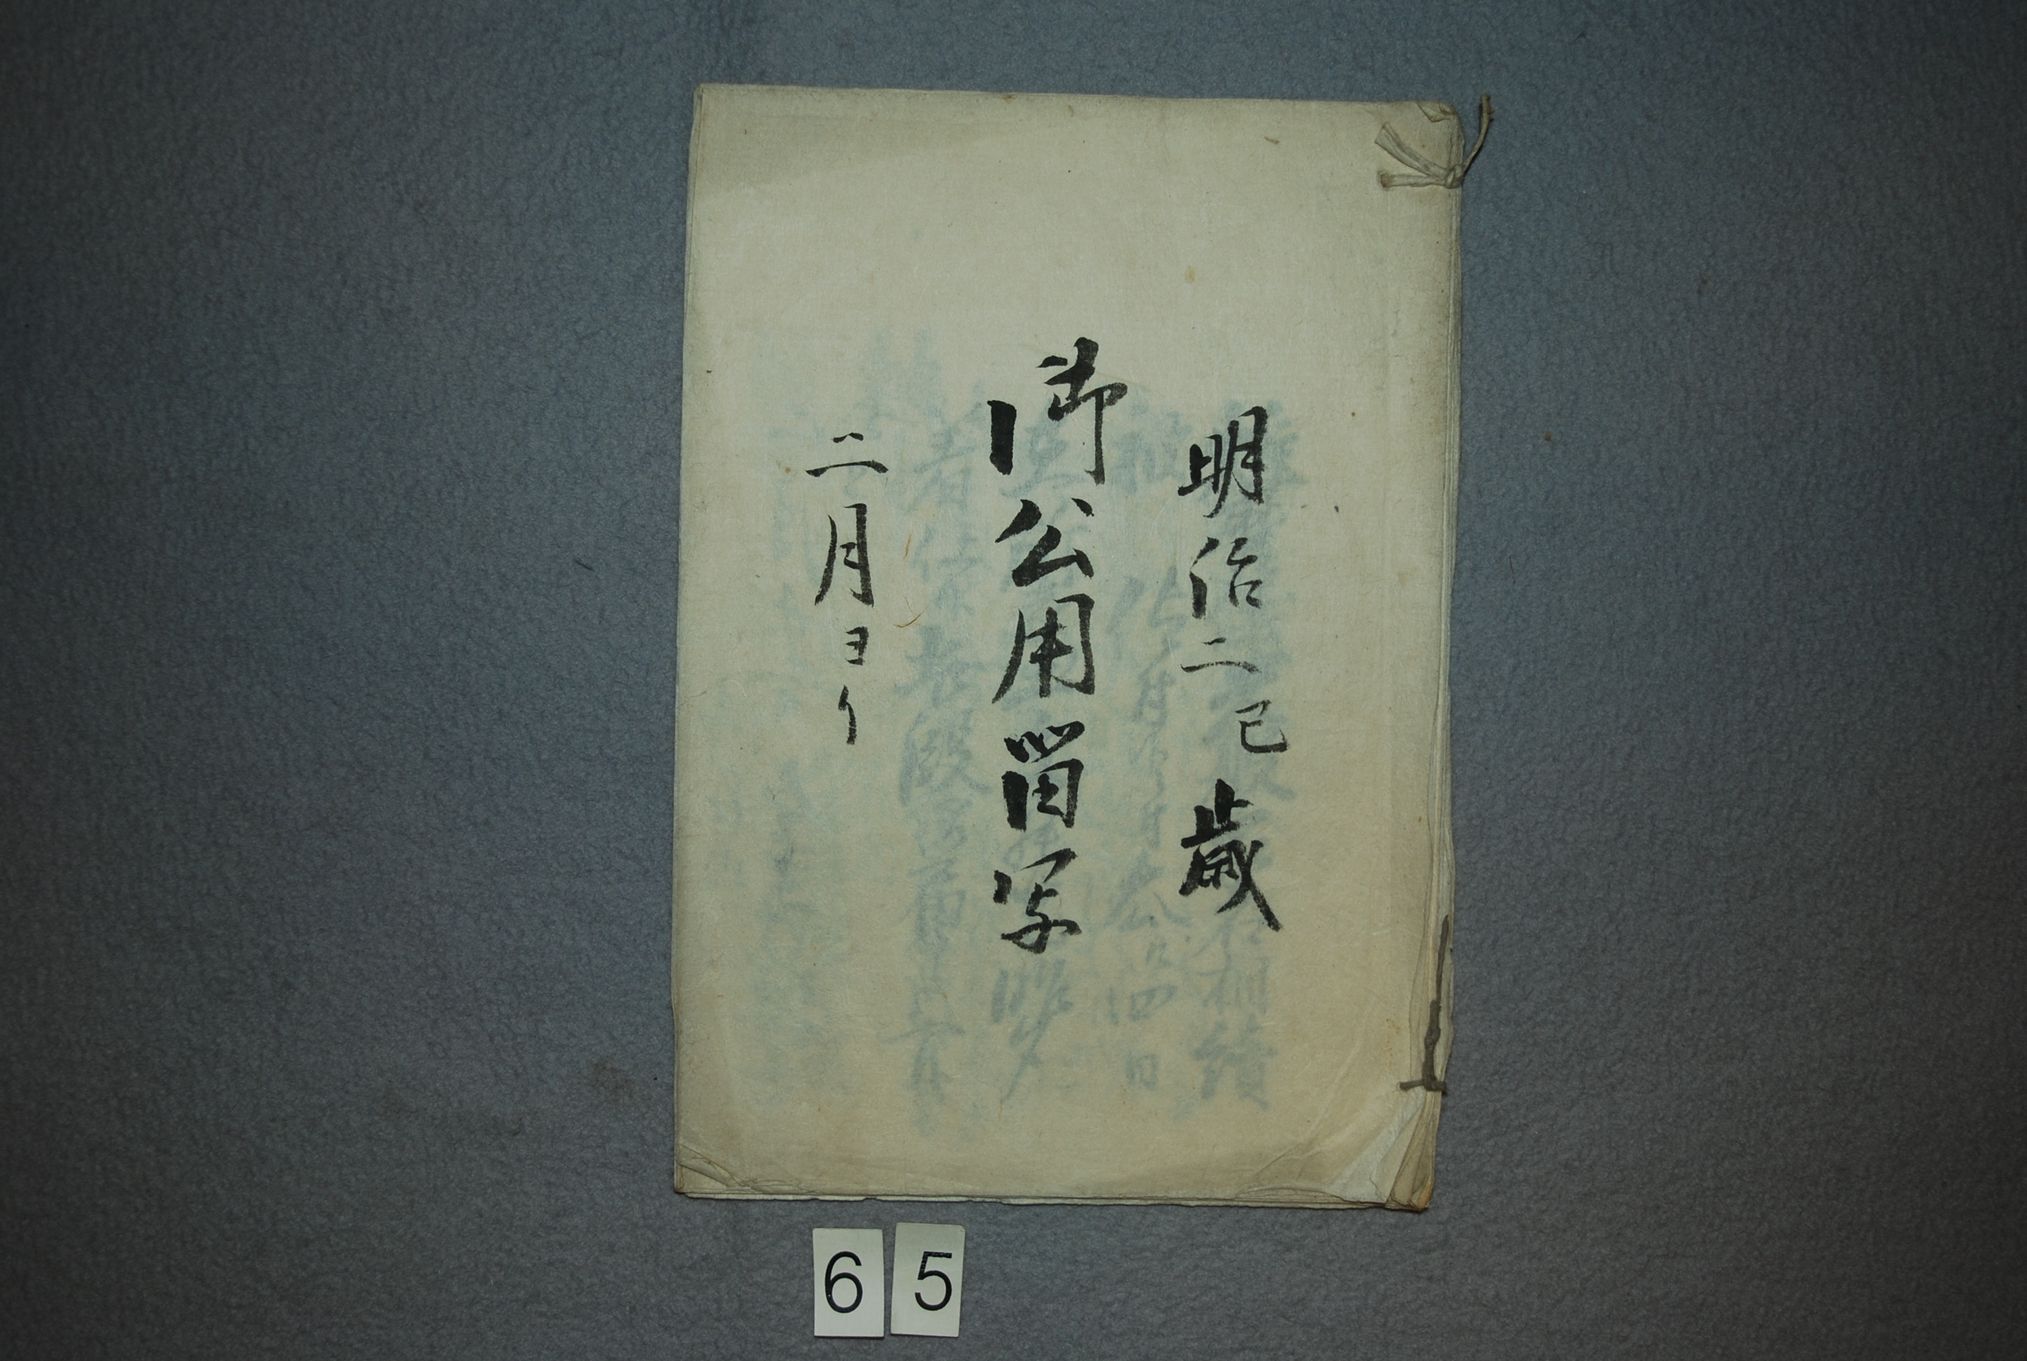 明治二巳歳
御公用留写
二月ヨリ
65